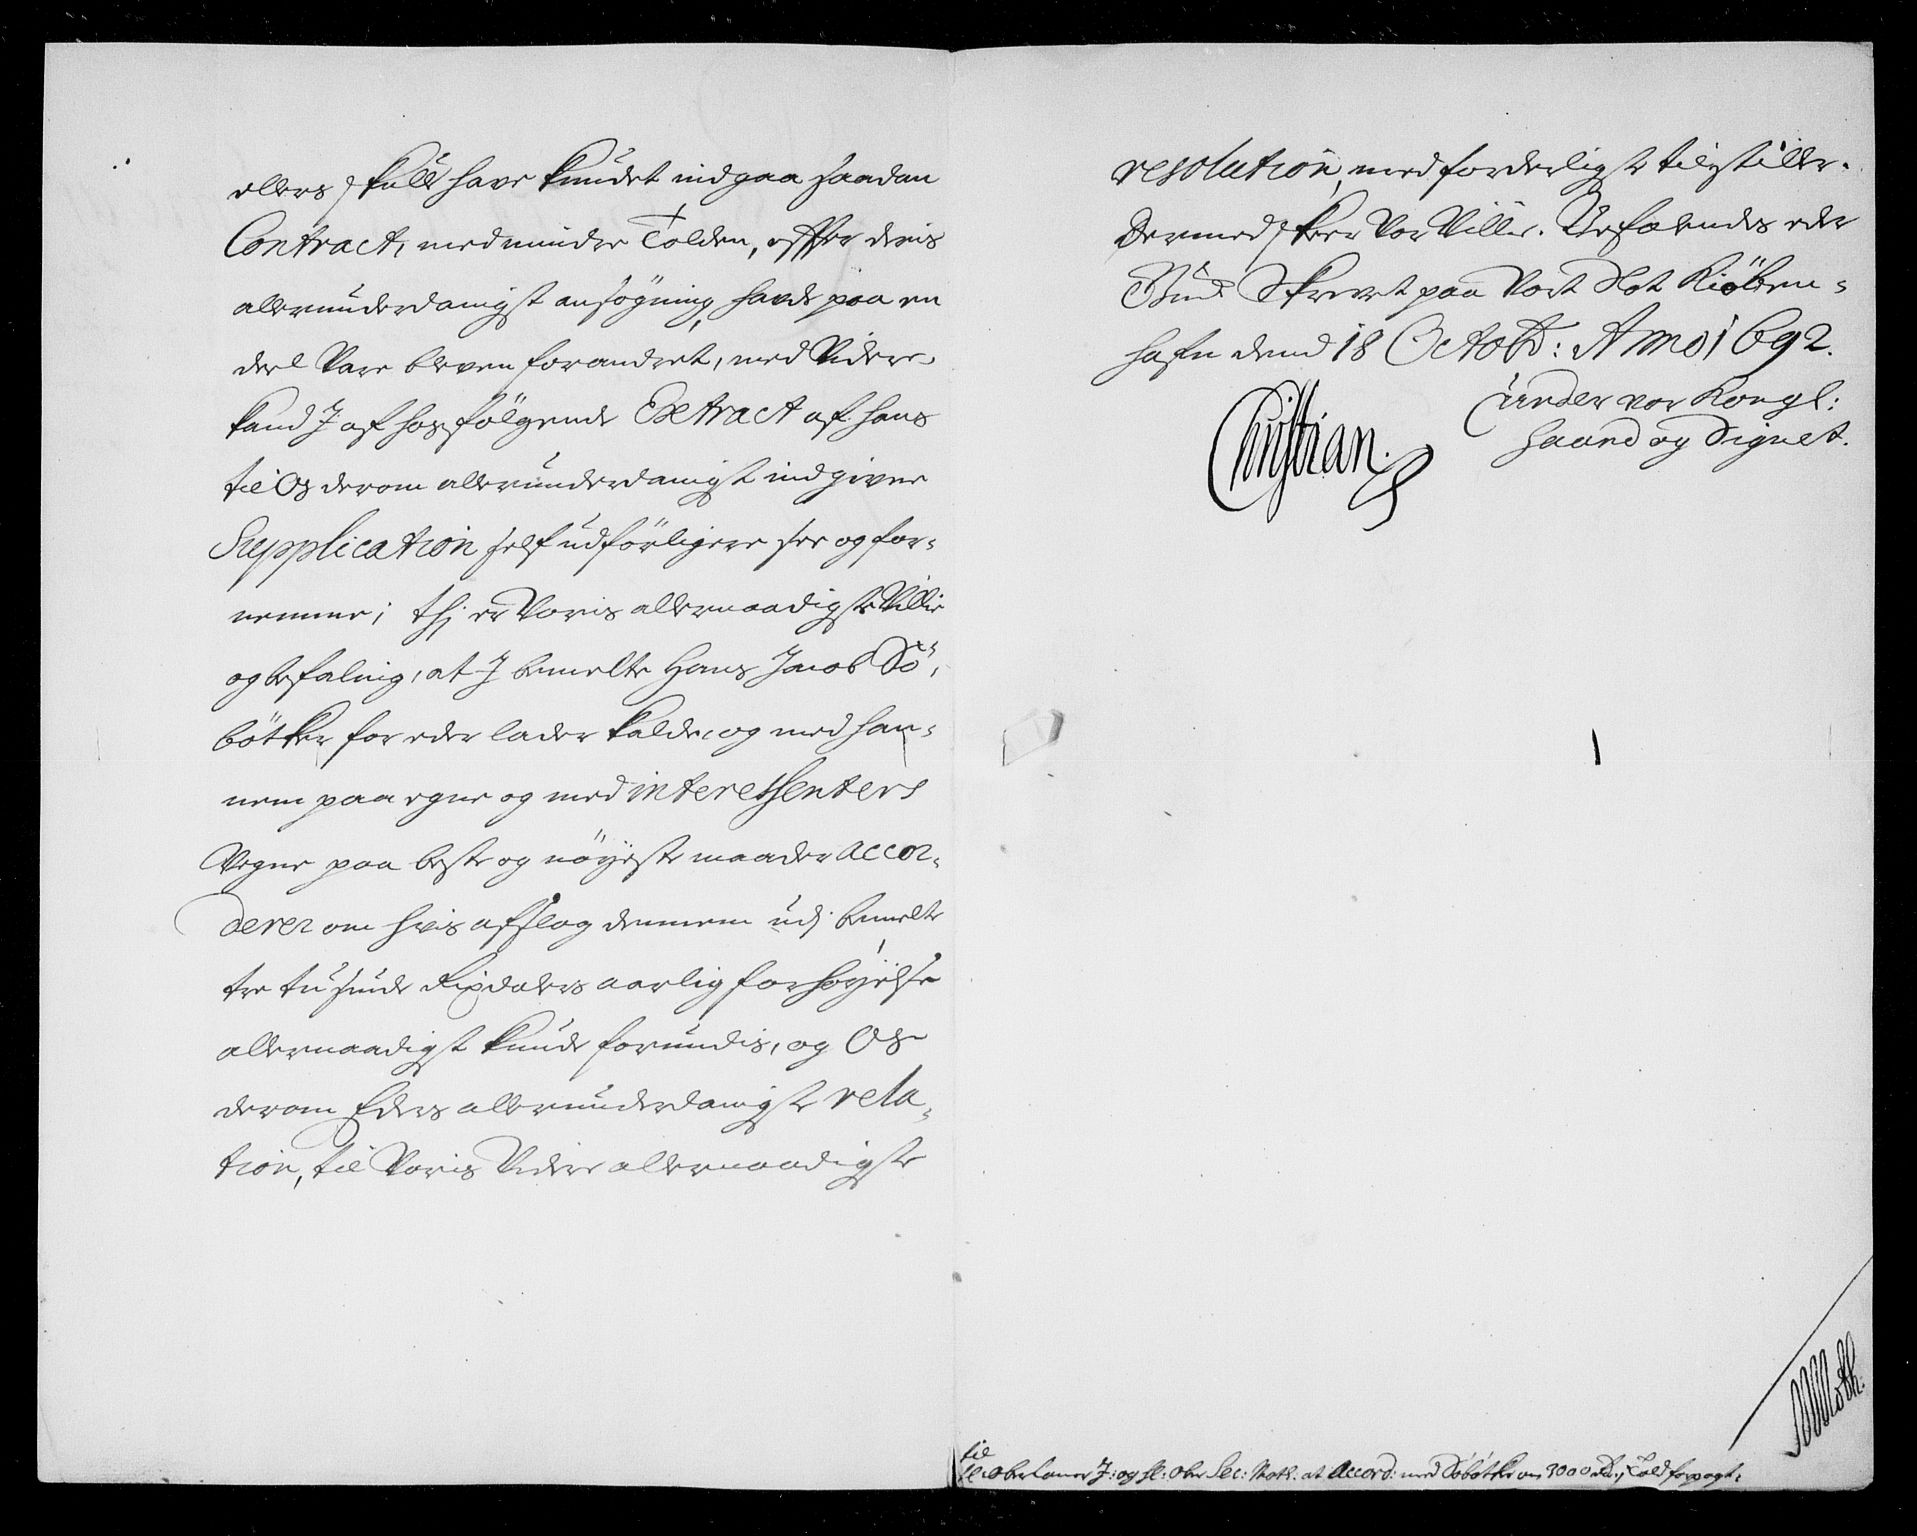 ellers skulle have kundet indgaa saadan
Contract, medmindre Tolden, effter deris
allerunderdanigst ansögning, hafde paa en
deel Vare bleven forandret, med Videre,
kand J af hosfölgende Extract af hans
til Os derom allerunderdanigst indgivne
Supplication self udförligere see og for-
nemme; thj er Voris allernaadigste Villie
og befaling, at J bemelte Hans Jacob Sö-
bötker for eder lader kalde, og med han-
nem paa egne og med interessenters
Vegne paa beste og nöyeste maader accor-
derer om hvis afslag dennem udj bemelte
tre tusinde Rixdalers aarlig forhöyelse
allernaadigst kunde forundis, og Os
derom Eders allerunderdanigste rela-
tion, til Voris Videre allernaadigste
resolution, med forderligst tilstiller.
Dermed skeer Vor Villie. Befalendes eder
Gud. Skrevet paa Vort Slot Kiöben-
hafn dend 18 Octobr: Anno 1692.
under vor Kongl:
haand og Signet.
Christian.
MMoth.
til
H: Ober Camer J: og H: Ober Sec: Moth: at Accord: med Söbötker om 3000 Rd: j Told forpagt: